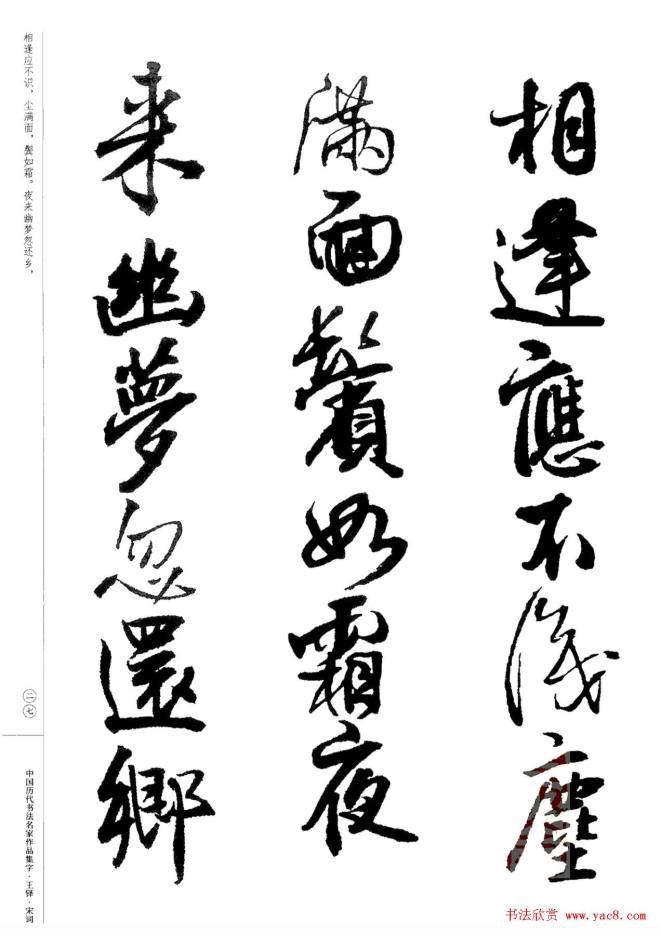 相逢應不識塵
滿面鬢如霜夜
来幽夢忽還鄉
相逢应不识，尘满面，鬓如霜。夜来幽梦忽还乡，
二七
中国历代书法名家作品集字·王铎·宋词
书法欣赏 www.yac8.com